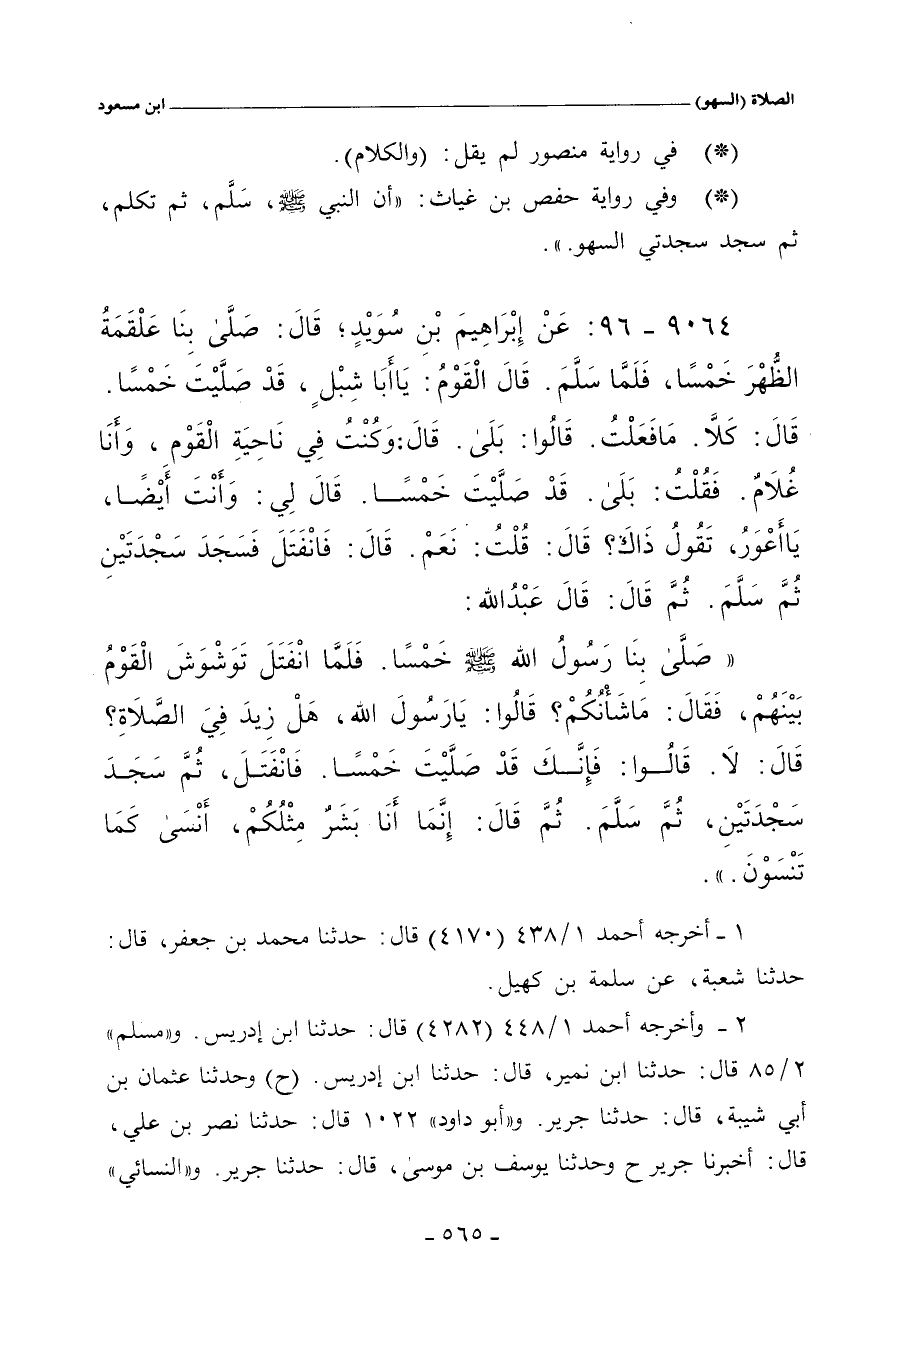 الصلاة (السهو) ــــــــــ ابن مسعود
(*) في رواية منصور لم يقل: (والكلام).
(*) وفي رواية حفص بن غياث: «أن النبي ﷺ، سَلَّم، ثم تكلم،
ثم سجد سجدتي السهو.».
٩٠٦٤ ـ ٩٦: عَنْ إِبْرَاهِيمَ بْنِ سُوَيْدٍ؛ قَالَ: صَلَّىٰ بِنَا عَلْقَمَةُ
الظُّهْرَ خَمْسًا، فَلَمَّا سَلَّمَ. قَالَ الْقَوْمُ: يَاأَبَا شِبْلٍ، قَدْ صَلَّيْتَ خَمْسًا.
قَالَ: كَلاَّ. مَافَعَلْتُ. قَالُوا: بَلَىٰ. قَالَ:وَكُنْتُ فِي نَاحِيَةِ الْقَوْمِ، وَأَنَا
غُلَامٌ. فَقُلْتُ: بَلَىٰ. قَدْ صَلَّيْتَ خَمْسًا. قَالَ لِي: وَأَنْتَ أَيْضًا،
يَاأَعْوَرُ، تَقُولُ ذَاكَ؟ قَالَ: قُلْتُ: نَعَمْ. قَالَ: فَانْفَتَلَ فَسَجَدَ سَجْدَتَيْنِ
ثُمَّ سَلَّمَ. ثُمَّ قَالَ: قَالَ عَبْدُالله:
« صَلَّىٰ بِنَا رَسُولُ الله ﷺ خَمْسًا. فَلَمَّا انْفَتَلَ تَوَشْوَشَ الْقَوْمُ
بَيْنَهُمْ، فَقَالَ: مَاشَأْنُكُمْ؟ قَالُوا: يَارَسُولَ الله، هَلْ زِيدَ فِيَ الصَّلَاةِ؟
قَالَ: لَا. قَالُوا: فَإِنَّكَ قَدْ صَلَّيْتَ خَمْسًا. فَانْفَتَلَ، ثُمَّ سَجَدَ
سَجْدَتَيْنِ، ثُمَّ سَلَّمَ. ثُمَّ قَالَ: إِنَّمَا أَنَا بَشَرٌ مِثْلُكُمْ، أَنْسَىٰ كَمَا
تَنْسَوْنَ.».
١ ـ أخرجه أحمد ٤٣٨/١ (٤١٧٠) قال: حدثنا محمد بن جعفر، قال:
حدثنا شعبة، عن سلمة بن كهيل.
٢ ـ وأخرجه أحمد ٤٤٨/١ (٤٢٨٢) قال: حدثنا ابن إدريس. و«مسلم»
٨٥/٢ قال: حدثنا ابن نمير، قال: حدثنا ابن إدريس. (ح) وحدثنا عثمان بن
أبي شيبة، قال: حدثنا جرير. و«أبو داود» ١٠٢٢ قال: حدثنا نصر بن علي،
قال: أخبرنا جرير ح وحدثنا يوسف بن موسىٰ، قال: حدثنا جرير. و«النسائي»
ـ ٥٦٥ ـ